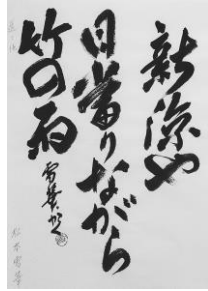 新涼や
日当りながら
竹の雨